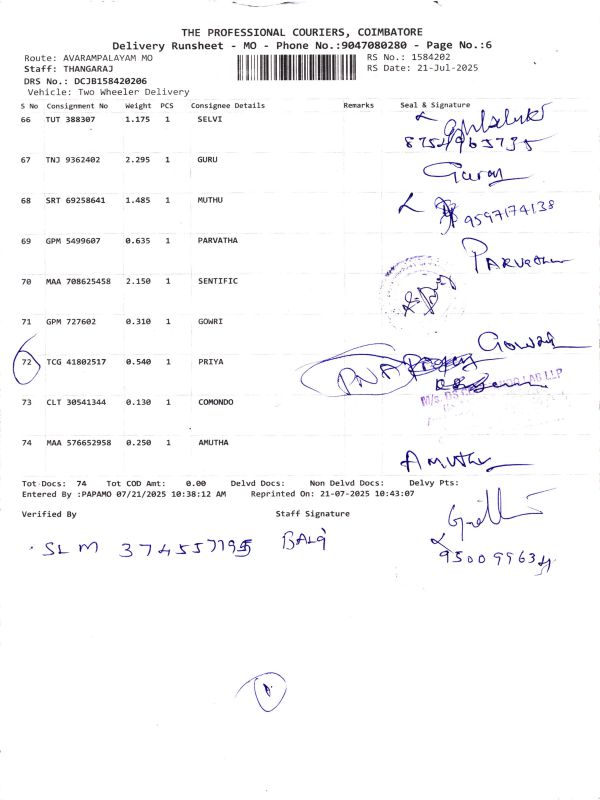 THE PROFESSIONAL COURIERS, COIMBATORE
Delivery Runsheet - MO - Phone No.:9047080280 - Page No.:6
Route: AVARAMPALAYAM MO RS No.: 1584202
Staff: THANGARAJ RS Date: 21-Jul-2025
DRS No.: DCJB158420206
Vehicle: Two Wheeler Delivery
S No Consignment No Weight PCS Consignee Details Remarks Seal & Signature
66 TUT 388307 1.175 1 SELVI
8754965735
67 TNJ 9362402 2.295 1 GURU
68 SRT 69258641 1.485 1 MUTHU
9597174138
69 GPM 5499607 0.635 1 PARVATHA
70 MAA 708625458 2.150 1 SENTIFIC
71 GPM 727602 0.310 1 GOWRI
72 TCG 41802517 0.540 1 PRIYA
73 CLT 30541344 0.130 1 COMONDO
74 MAA 576652958 0.250 1 AMUTHA
Tot Docs: 74 Tot COD Amt: 0.00 Delvd Docs: Non Delvd Docs: Delvy Pts:
Entered By :PAPAMO 07/21/2025 10:38:12 AM Reprinted On: 21-07-2025 10:43:07
Verified By Staff Signature
SLM